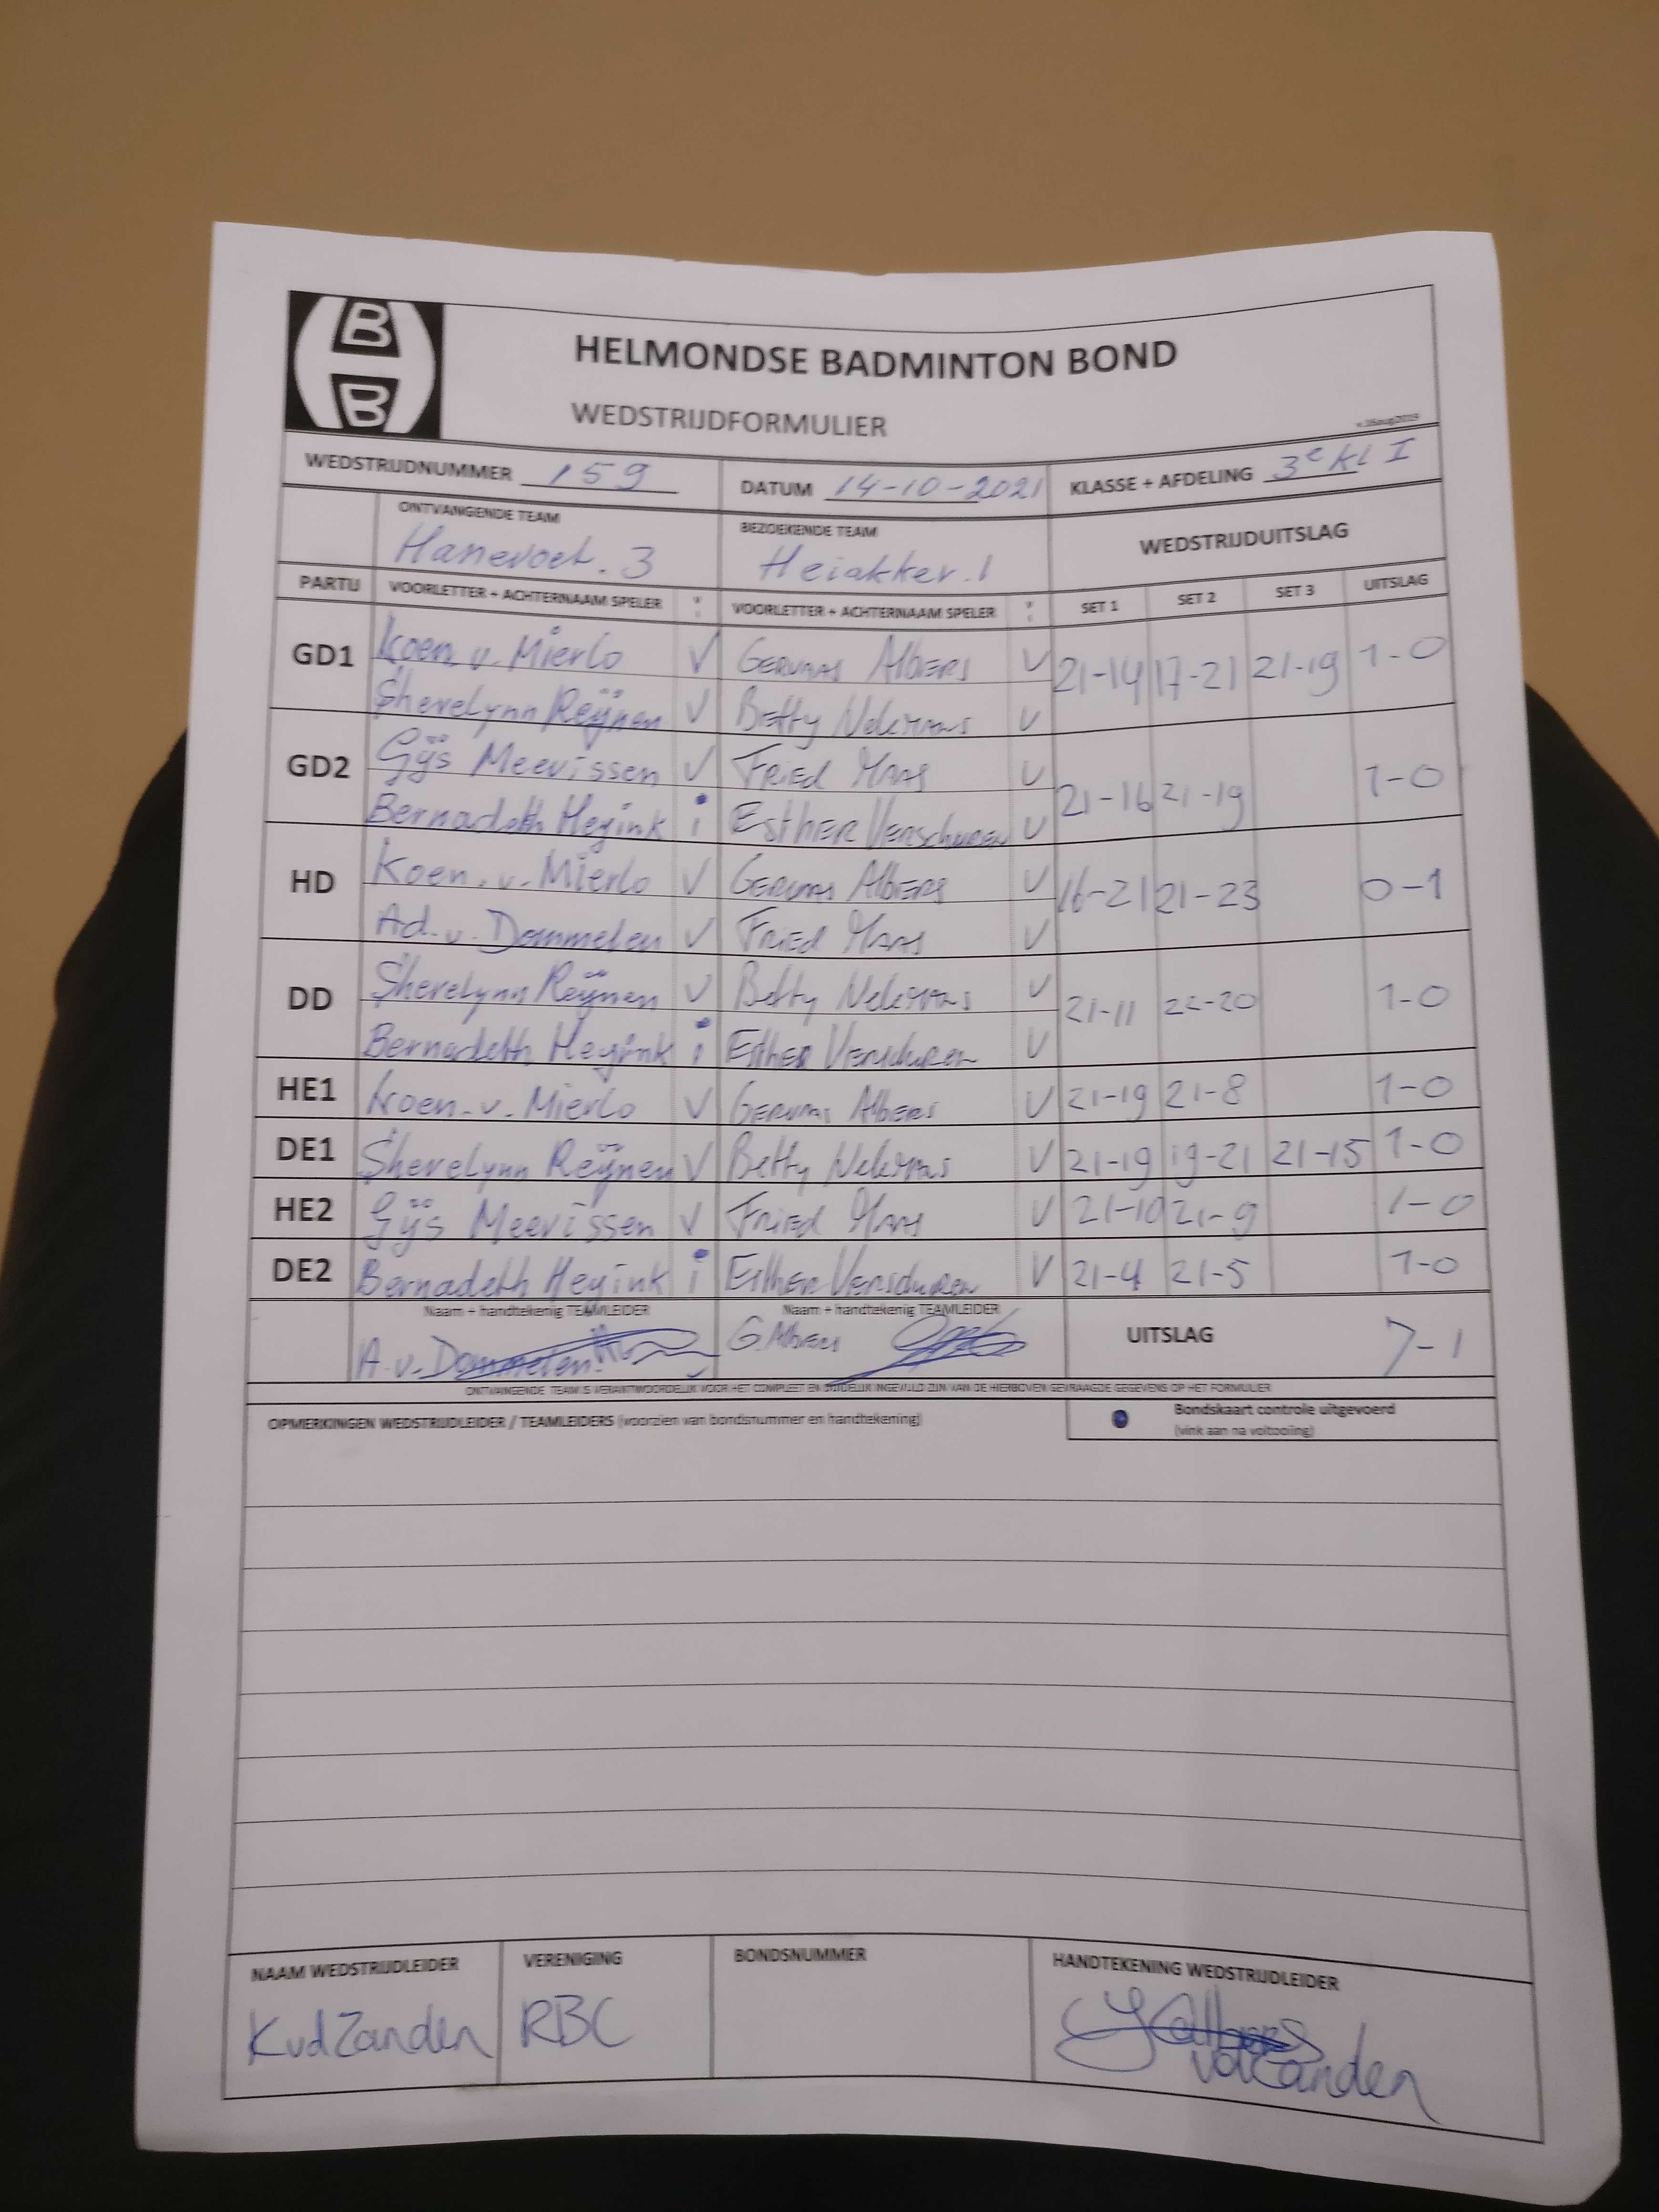 B
B
HELMONDSE BADMINTON BOND
WEDSTRIJDFORMULIER
v.16aug2019
WEDSTRIJDNUMMER 159 DATUM 14-10-2021 KLASSE + AFDELING 3e Kl I
ONTVANGENDE TEAM BEZOEKENDE TEAM WEDSTRIJDUITSLAG
Hanevoet. 3 Heiakker. 1
PARTIJ VOORLETTER + ACHTERNAAM SPELER VOORLETTER + ACHTERNAAM SPELER SET 1 SET 2 SET 3 UITSLAG
GD1 Koen v. Mierlo V Gervas Albers V 21-14 17-21 21-19 1-0
Sherelynn Reÿnen V Betty V
GD2 Gÿs Meevissen V Fried Maas V 21-16 21-19 1-0
Bernadeth Heyink i Esther Verschuren V
HD Koen. v. Mierlo V Gervas Albers V 16-21 21-23 0-1
Ad. v. Dommelen V Fried Maas V
DD Sherelynn Reÿnen V Betty V 21-11 22-20 1-0
Bernadeth Heyink i Esther Verschuren V
HE1 Koen. v. Mierlo V Gervas Albers V 21-19 21-8 1-0
DE1 Sherelynn Reÿnen V Betty V 21-19 19-21 21-15 1-0
HE2 Gÿs Meevissen V Fried Maas V 21-10 21-9 1-0
DE2 Bernadeth Heyink i Esther Verschuren V 21-4 21-5 1-0
Naam + handtekenig TEAMLEIDER Naam + handtekenig TEAMLEIDER
A. v. Dommelen. G. Albers UITSLAG 7-1
ONTVANGENDE TEAM IS VERANTWOORDELIJK VOOR HET COMPLEET EN DUIDELIJK INGEVULD ZIJN VAN DE HIERBOVEN GEVRAAGDE GEGEVENS OP HET FORMULIER
OPMERKINGEN WEDSTRIJDLEIDER / TEAMLEIDERS (voorzien van bondsnummer en handtekening) Bondskaart controle uitgevoerd
(vink aan na voltooiing)
NAAM WEDSTRIJDLEIDER VERENIGING BONDSNUMMER HANDTEKENING WEDSTRIJDLEIDER
KvdZanden RBC
vdZanden